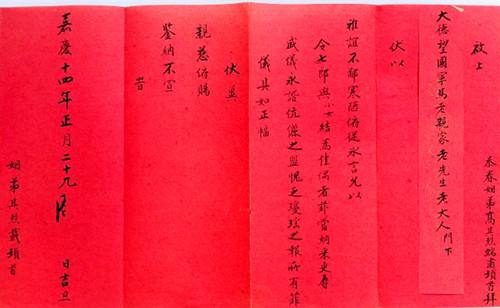 忝眷姻弟高其烈端肅頓首拜
啟上
大德望國軍馬老親家老先生老大人門下
伏以
雅誼不鄙寒陋俯從氷言兄以
令七郎與小女結為佳偶者菲當納采更辱
盛儀永諧伉儷之盟愧乏瓊瑤之報所有菲
儀具如正幅
伏冀
親慈俯賜
鑒納不宣
旹
嘉慶十四年正月二十九日吉旦
姻弟其烈載頓首